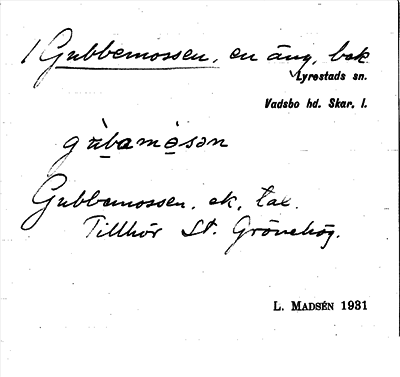 1 Gubbemossen, en äng, bek
Lyrestads sn.
Vadsbo hd. Skar. l.
gùbamòsən
Gubbemossen. ek, tax.
Tillhör St. Grönehög.
L. MADSÉN 1931